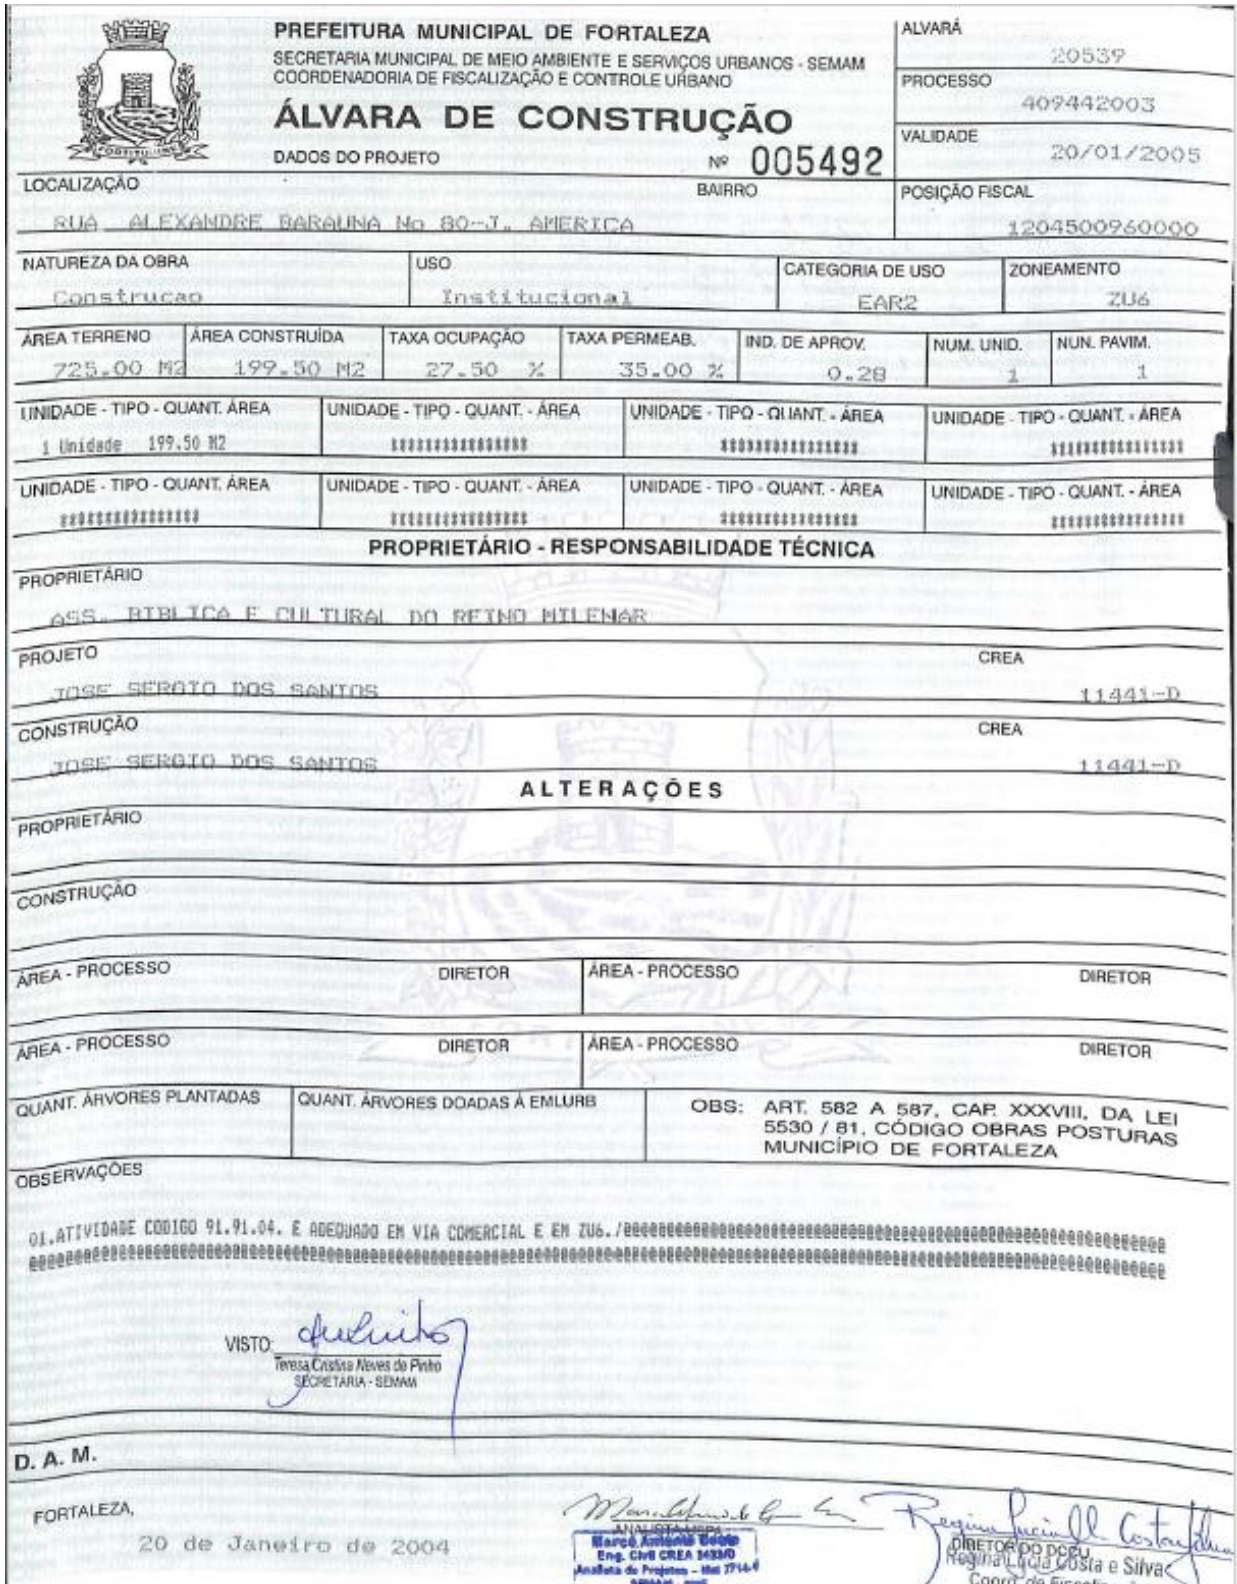 PREFEITURA MUNICIPAL DE FORTALEZA
SECRETARIA MUNICIPAL DE MEIO AMBIENTE E SERVIÇOS URBANOS - SEMAM
COORDENADORIA DE FISCALIZAÇÃO E CONTROLE URBANO
ÁLVARA DE CONSTRUÇÃO
DADOS DO PROJETO Nº 005492
ALVARÁ
20539
PROCESSO
409442003
VALIDADE
20/01/2005
LOCALIZAÇÃO BAIRRO POSIÇÃO FISCAL
RUA ALEXANDRE BARAUNA No 80-J. AMERICA 1204500960000
NATUREZA DA OBRA USO CATEGORIA DE USO ZONEAMENTO
Construcao Institucional EAR2 ZU6
ÁREA TERRENO ÁREA CONSTRUÍDA TAXA OCUPAÇÃO TAXA PERMEAB. IND. DE APROV. NUM. UNID. NUN. PAVIM.
725.00 M2 199.50 M2 27.50 % 35.00 % 0.28 1 1
UNIDADE - TIPO - QUANT. ÁREA UNIDADE - TIPO - QUANT. - ÁREA UNIDADE - TIPO - QUANT. - ÁREA UNIDADE - TIPO - QUANT. - ÁREA
1 Unidade 199.50 M2
UNIDADE - TIPO - QUANT. ÁREA UNIDADE - TIPO - QUANT. - ÁREA UNIDADE - TIPO - QUANT. - ÁREA UNIDADE - TIPO - QUANT. - ÁREA
PROPRIETÁRIO - RESPONSABILIDADE TÉCNICA
PROPRIETÁRIO
ASS. BIBLICA E CULTURAL DO REINO MILENAR
PROJETO CREA
JOSE SERGIO DOS SANTOS 11441-D
CONSTRUÇÃO CREA
JOSE SERGIO DOS SANTOS 11441-D
ALTERAÇÕES
PROPRIETÁRIO
CONSTRUÇÃO
ÁREA - PROCESSO DIRETOR ÁREA - PROCESSO DIRETOR
ÁREA - PROCESSO DIRETOR ÁREA - PROCESSO DIRETOR
QUANT. ÁRVORES PLANTADAS QUANT. ÁRVORES DOADAS À EMLURB
OBS: ART. 582 A 587, CAP. XXXVIII, DA LEI
5530 / 81, CÓDIGO OBRAS POSTURAS
MUNICÍPIO DE FORTALEZA
OBSERVAÇÕES
01.ATIVIDADE CODIGO 91.91.04. E ADEQUADO EM VIA COMERCIAL E EM ZU6./
VISTO:
Teresa Cristina Neves de Pinho
SECRETARIA - SEMAM
D. A. M.
FORTALEZA,
20 de Janeiro de 2004
Marco Antonio
Eng. Civil CREA
Analista de Projetos - Mat
DIRETOR DO DCCU
Regina Lúcia Costa e Silva
Coord. de